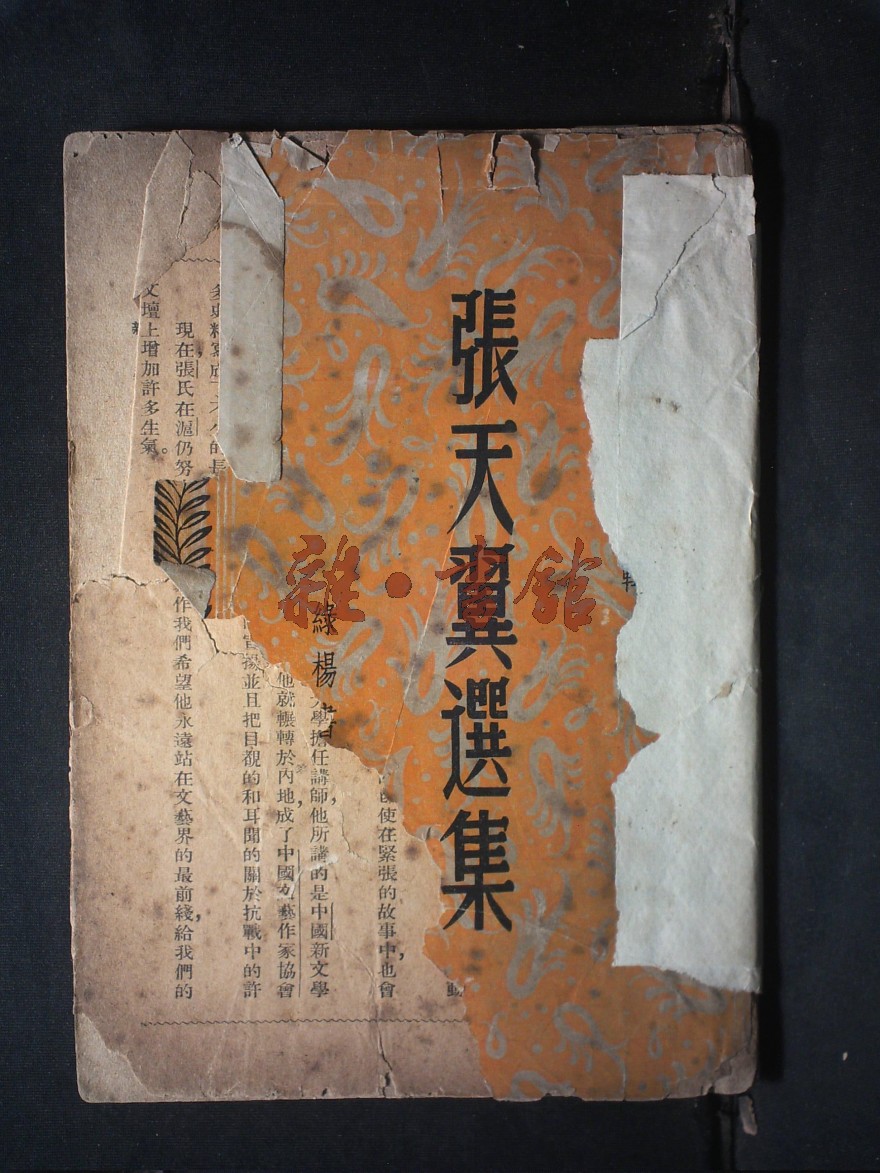 張天翼選集
綠楊書
特
雜·書館
使在緊張的故事中，也會
動
學擔任講師，他所講的是中國新文學
他就輾轉於內地，成了中國文藝作家協會
並且把目覩的和耳聞的關於抗戰中的許
的長
現在張氏在滬仍努
作我們希望他永遠站在文藝界的最前綫，給我們的
文壇上增加許多生氣。